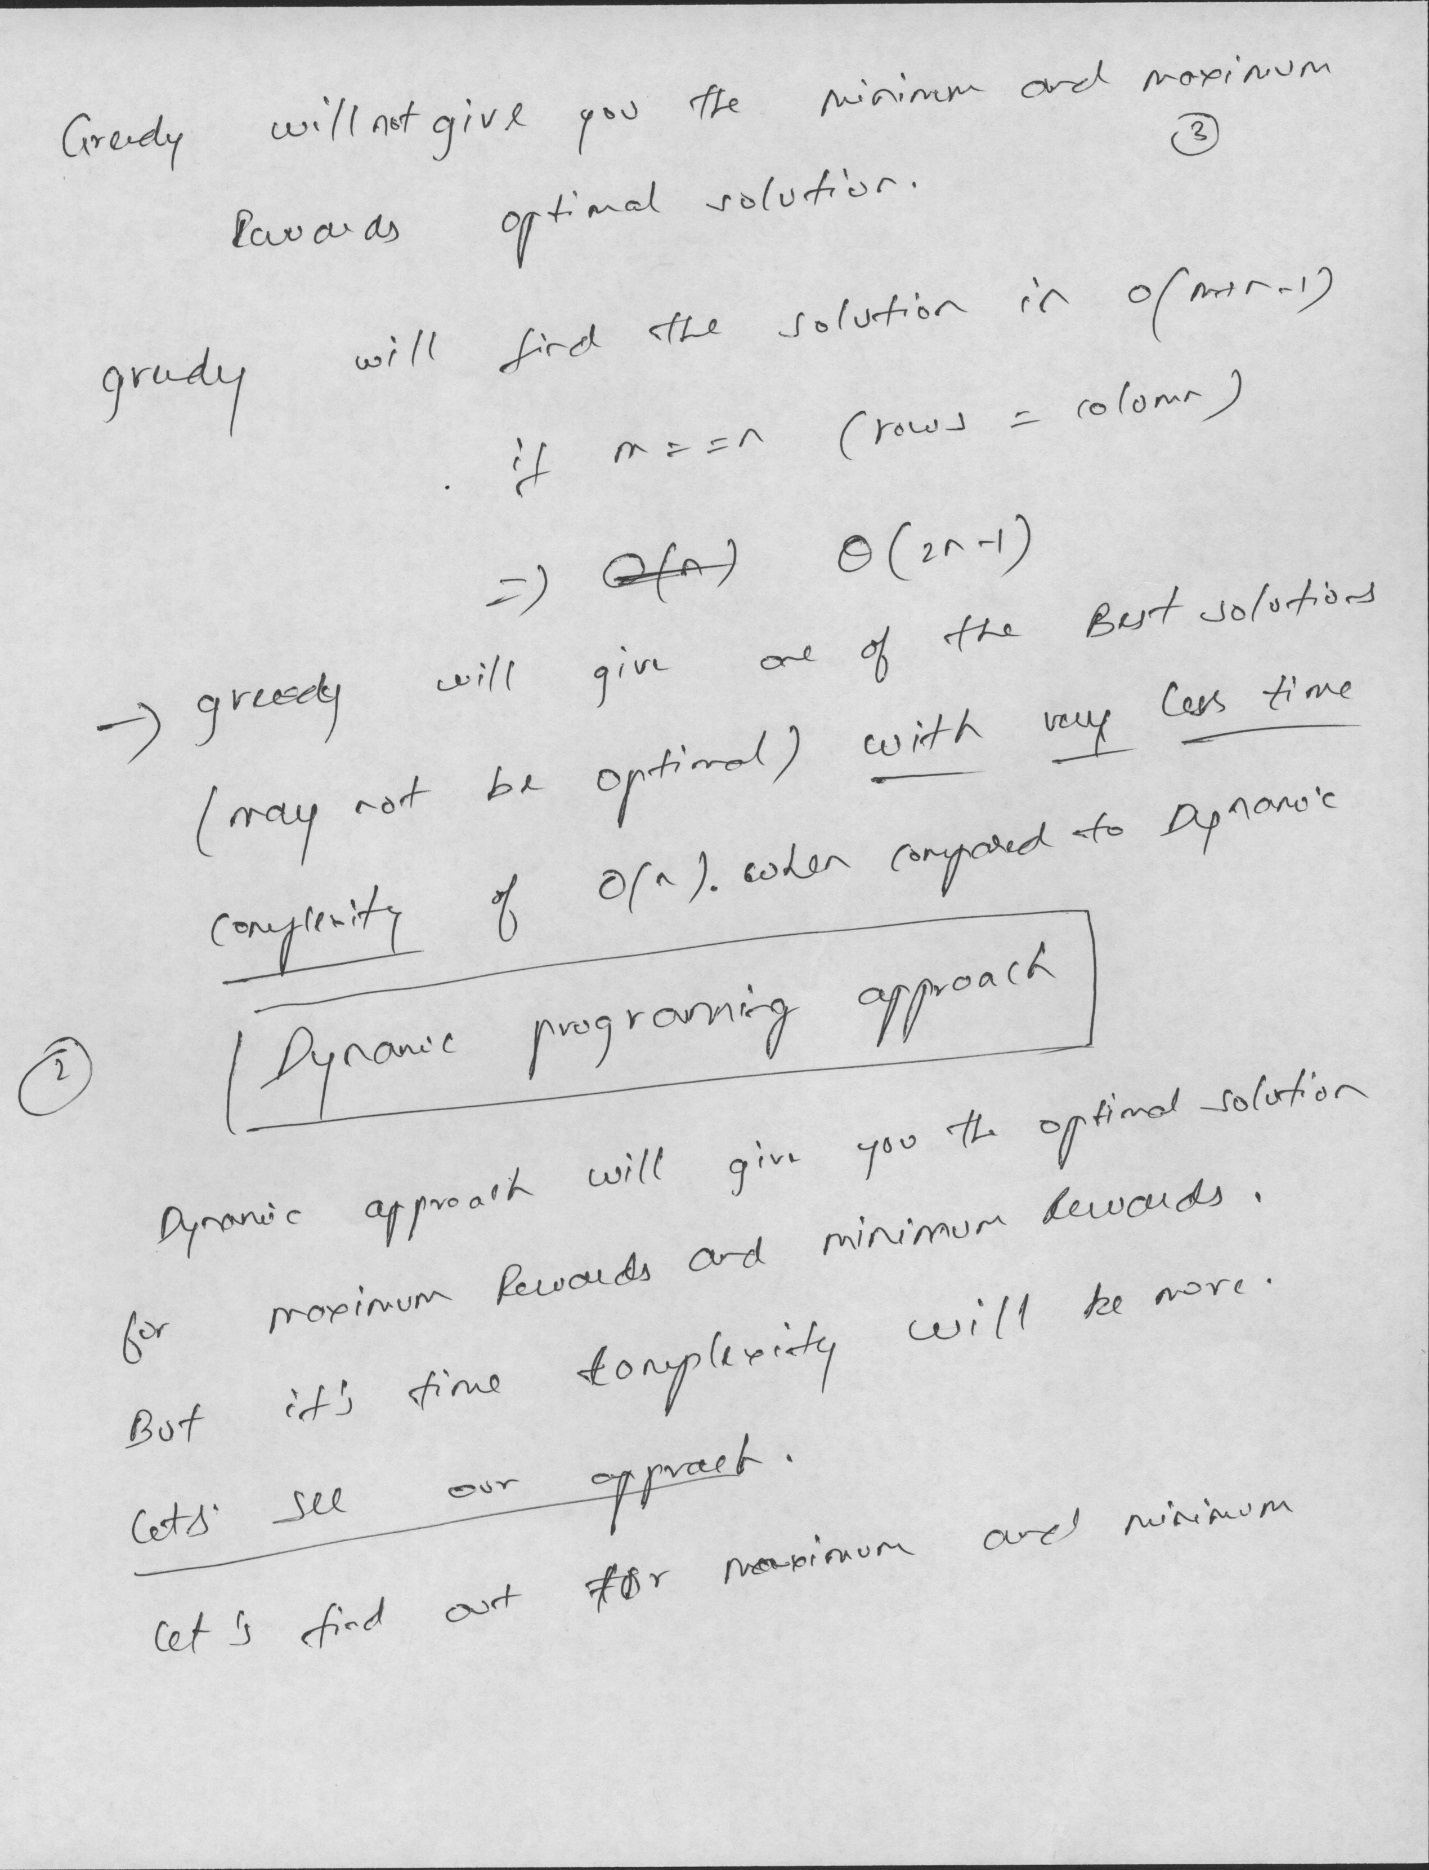 Greedy will not give you the minimum and maximum
③
Rewards optimal solution.
greedy will find the solution in O(m+n-1)
if m==n (rows = column)
=> O(n) θ(2n-1)
-> greedy will give one of the Best solutions
(may not be optimal) with very less time
complexity of O(n). when compared to Dynamic
② Dynamic programming approach
Dynamic approach will give you the optimal solution
for maximum Rewards and minimum Rewards.
But it's time complexity will be more.
Lets' see our approach.
Let's find out for maximum and minimum